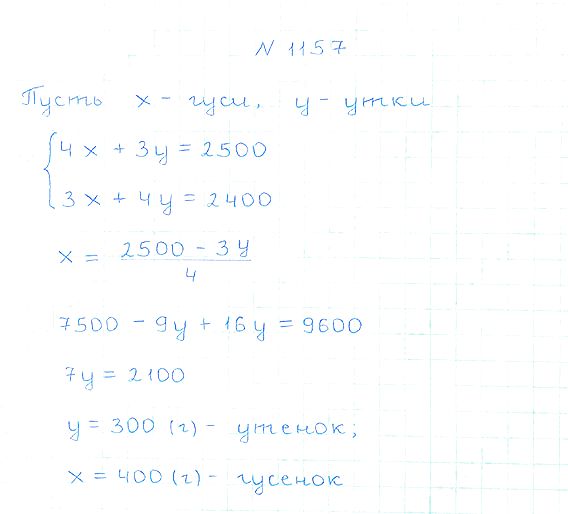 N 1157
Пусть x - гуси, y - утки
4x + 3y = 2500
3x + 4y = 2400
x = 2500 - 3y / 4
7500 - 9y + 16y = 9600
7y = 2100
y = 300 (г) - утенок;
x = 400 (г) - гусенок